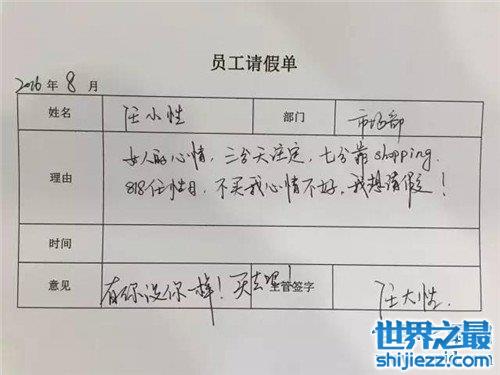 员工请假单
2016年8月
姓名 任小性 部门 市场部
理由 女人的心情，三分天注定，七分靠shopping.
818任性日，不买我心情不好，我想请假！
时间
意见 有你没你一样！买去吧！ 主管签字 任大性.
世界之最
shijiezzi.com